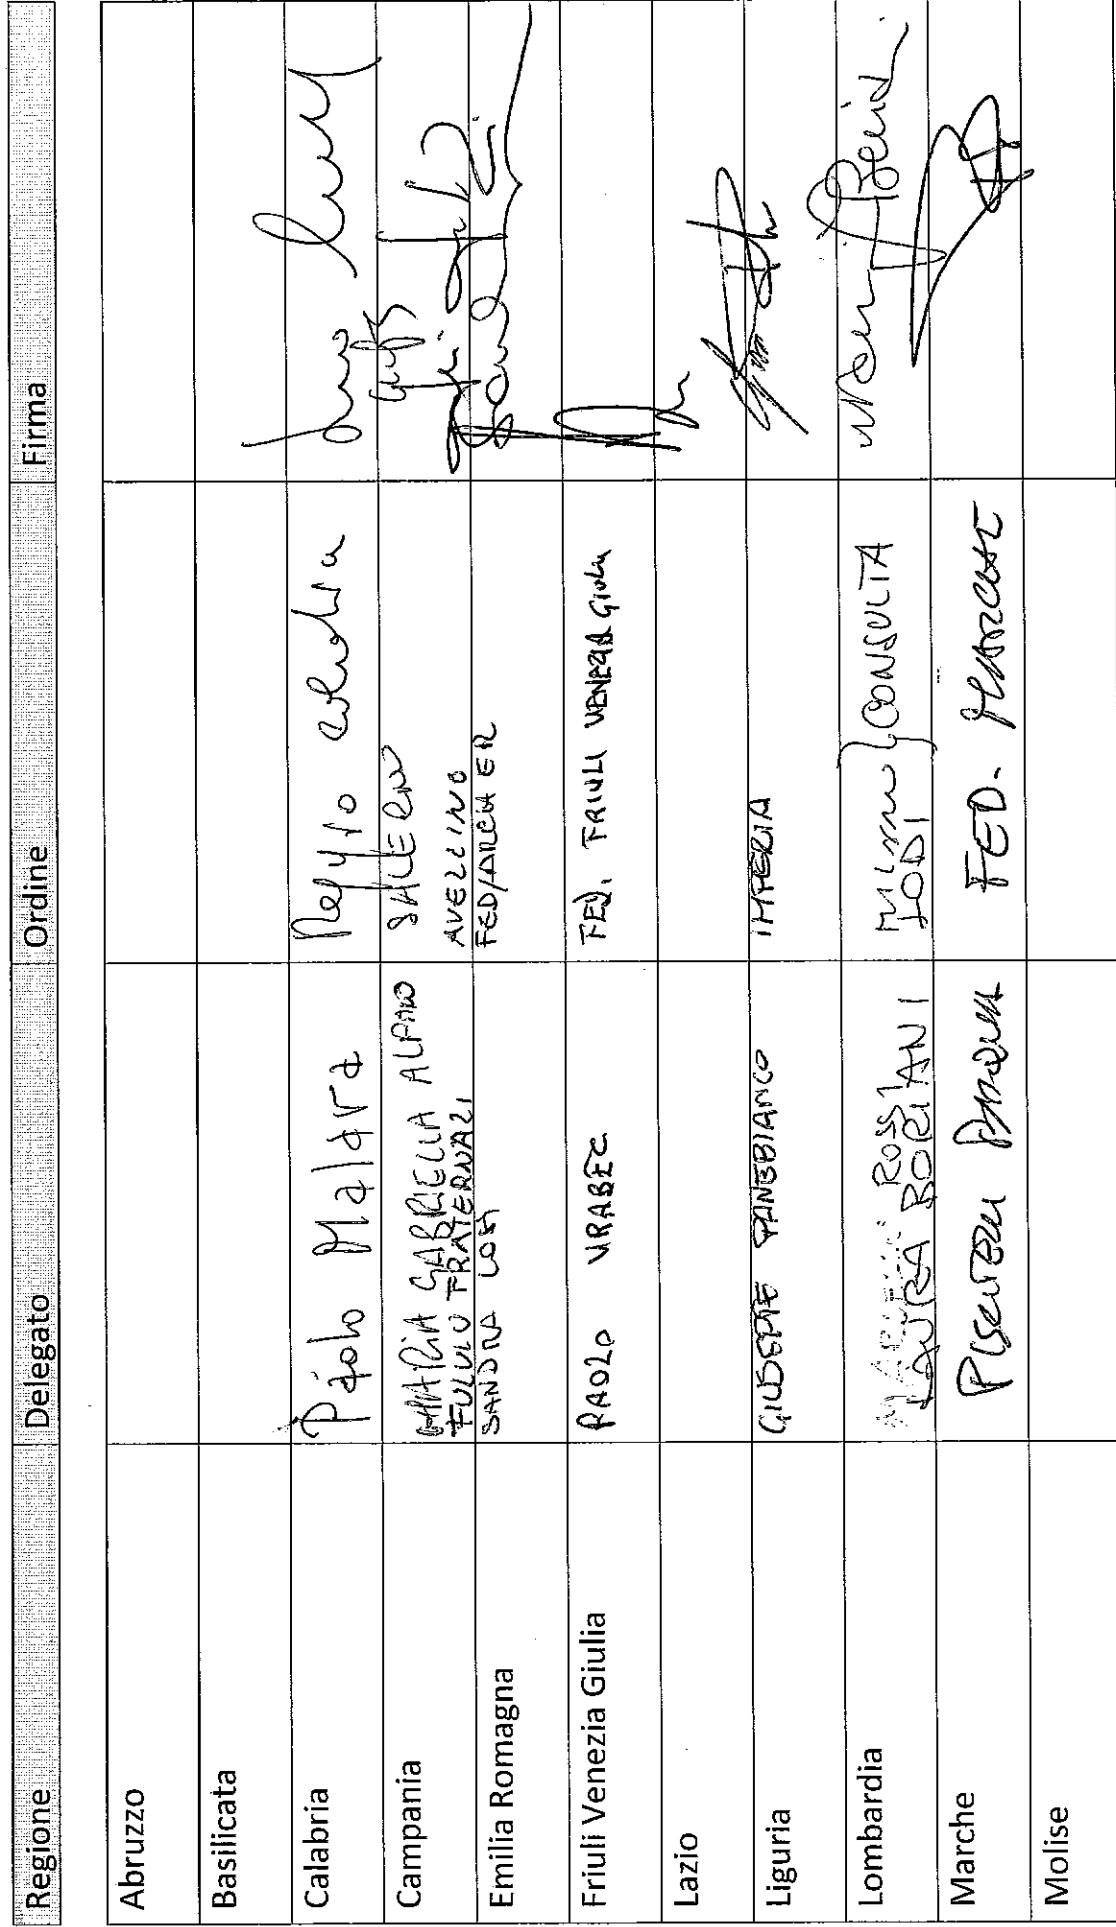 Regione Delegato Ordine Firma
Abruzzo
Basilicata
Calabria Paolo Malara Reggio Calabria
Campania MARIA GABRIELLA ALFANO SALERNO
FULVIO FRATERNALI AVELLINO
Emilia Romagna SANDRA LOSI FED/ARCH ER
Friuli Venezia Giulia PAOLO VRABEC FED. FRIULI VENEZIA GIULIA
Lazio
Liguria GIUSEPPE PANEBIANCO IMPERIA
Lombardia ROSSI MILANO } CONSULTA
LAURA BORIANI LODI
Marche FED. MARCHE
Molise